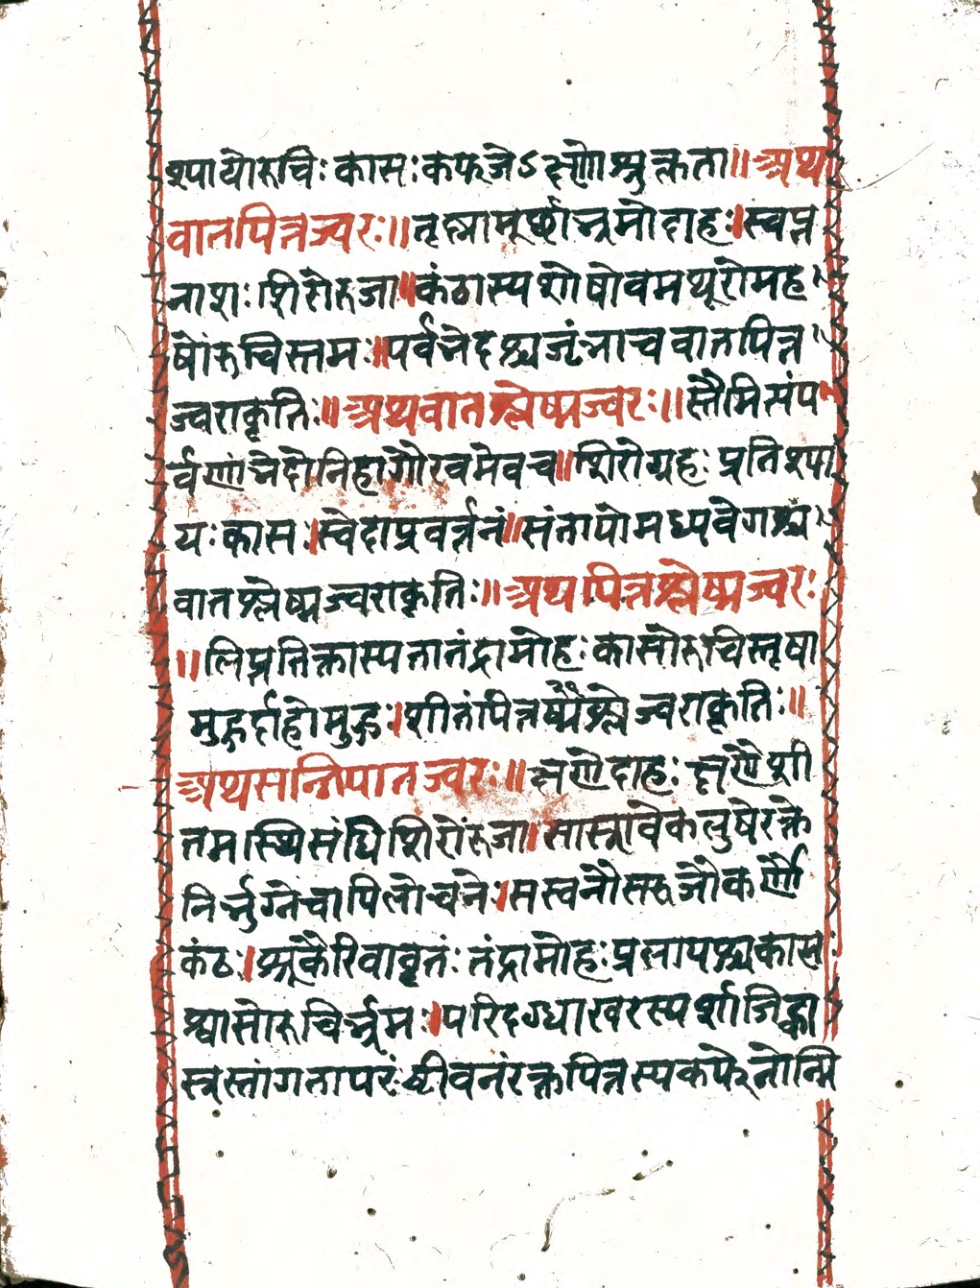 श्यायोरुचिः कासः कफजेऽक्ष्णोश्शुक्लता॥ अथ
वातपित्तज्वरः॥ तृष्णामूर्छाभ्रमोदाहः।स्वप्न
नाशः शिरोरुजा॥ कंठास्यशोषोवमथूरोमह
र्षोरुचिस्तमः॥ पर्वभेदश्चजृंभाचवातपित्त
ज्वराकृतिः॥ अथवातश्लेष्मज्वरः॥ स्तैमित्यंप
र्वणांभेदोनिद्रागौरवमेवच॥ शिरोग्रहः प्रतिश्या
यः कासः।स्वेदाप्रवर्त्तनं॥ संतापोमध्यवेगश्च
वातश्लेष्मज्वराकृतिः॥ अथपित्तश्लेष्मज्वरः
॥ लिप्ततिक्तास्यतातंद्रामोहः कासोरुचिस्तृषा
मुहुर्दाहोमुहुः।शीतंपित्तश्लेज्वराकृतिः॥
अथसन्निपातज्वरः॥ क्षणेदाहः क्षणेशी
तमस्थिसंधिशिरोरुजा। सास्रावेकलुषेरक्ते
निर्भुग्नेचापिलोचने।सस्वनौसरुजौकर्णौ
कंठः।शूकैरिवावृतः तंद्रामोहः प्रलापश्चकासः
श्वासोरुचिर्भ्रमः।परिदग्धाखरस्पर्शाजिह्वा
स्त्रस्तांगतापरंः ष्टीवनंरक्तपित्तस्यकफेनोन्मि